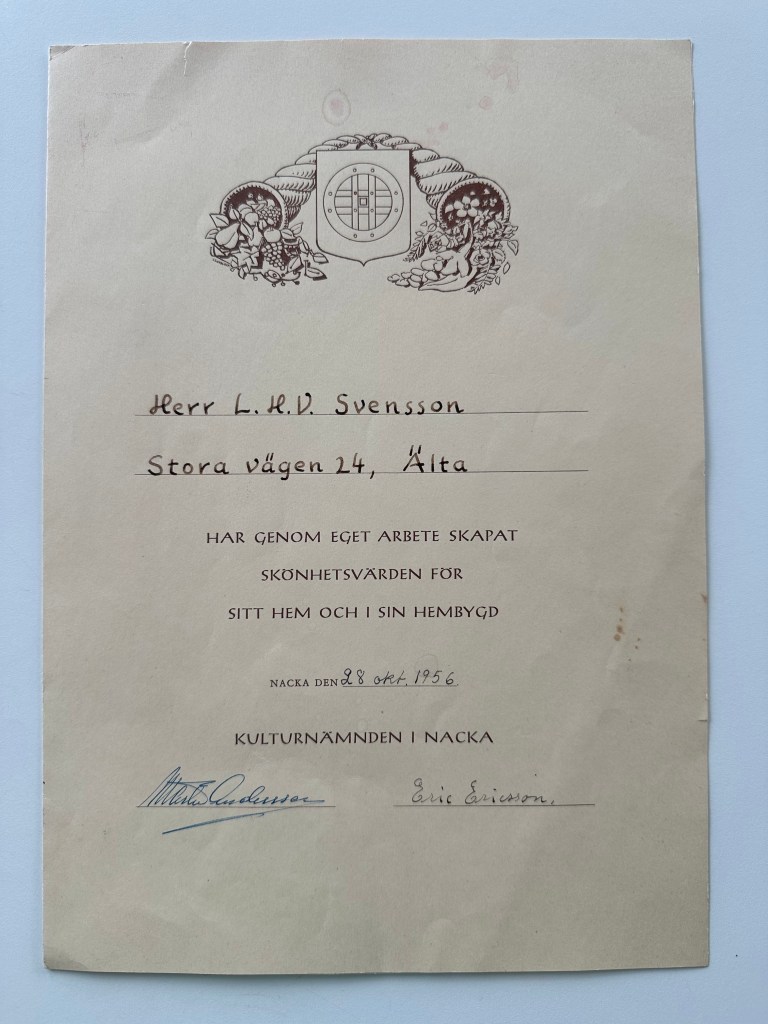 Herr L.H.V. Svensson
Stora vägen 24, Älta
HAR GENOM EGET ARBETE SKAPAT
SKÖNHETSVÄRDEN FÖR
SITT HEM OCH I SIN HEMBYGD
NACKA DEN 28 okt. 1956
KULTURNÄMNDEN I NACKA
Andersson Eric Ericsson.